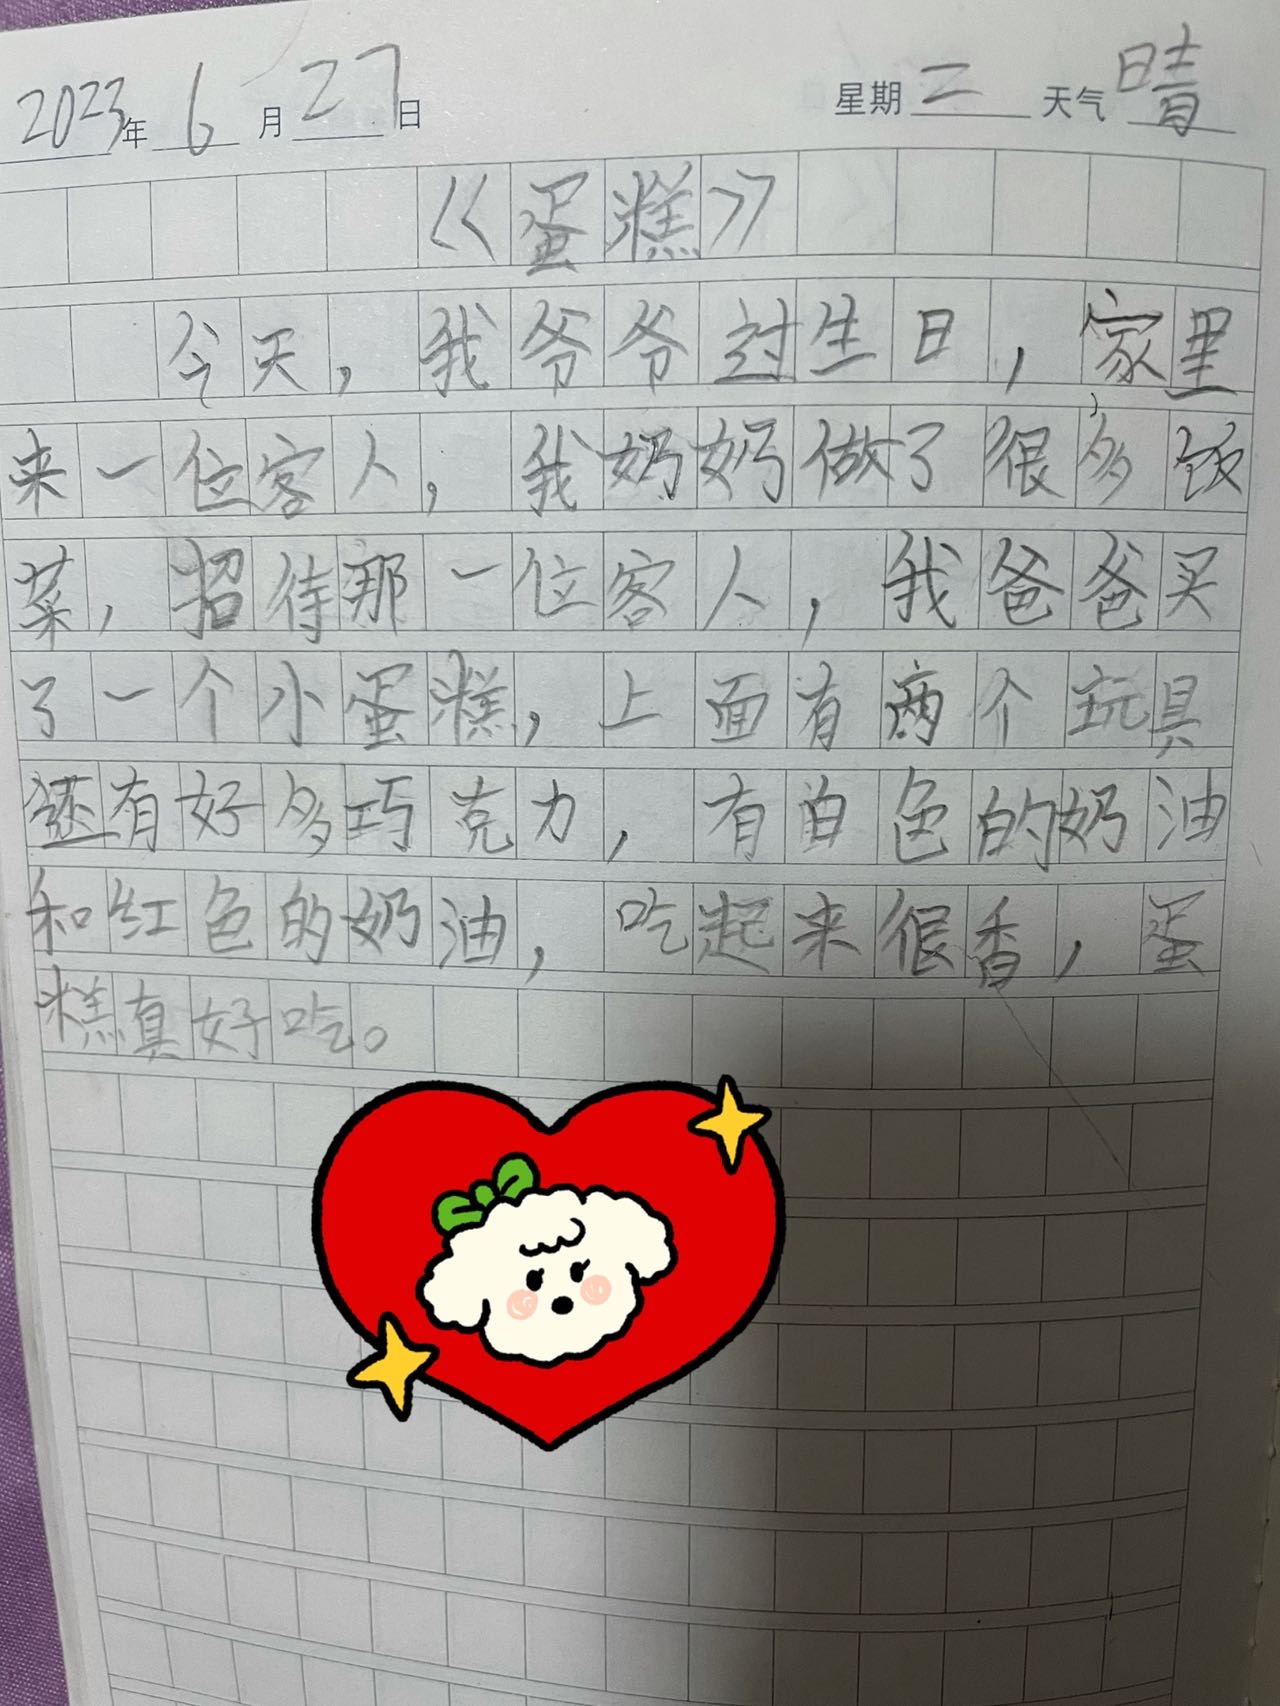 2023年6月27日 星期二 天气晴
《蛋糕》
今天，我爷爷过生日，家里
来一位客人，我奶奶做了很多饭
菜，招待那一位客人，我爸爸买
了一个小蛋糕，上面有两个玩具
还有好多巧克力，有白色的奶油
和红色的奶油，吃起来很香，蛋
糕真好吃。